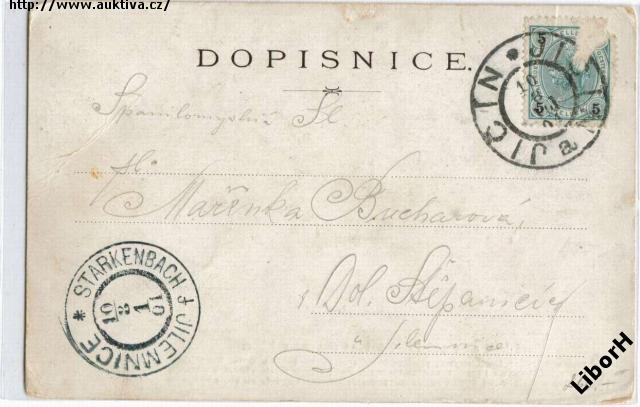 http://www.auktiva.cz/
DOPISNICE.
5
5 5
JIČIN
JIČIN a
10
Sl.
sl.
Mařenka Bucharová,
Dol. Štěpanicích
u Jilemnice
STARKENBACH
* JILEMNICE
10
3
1
01
LiborH